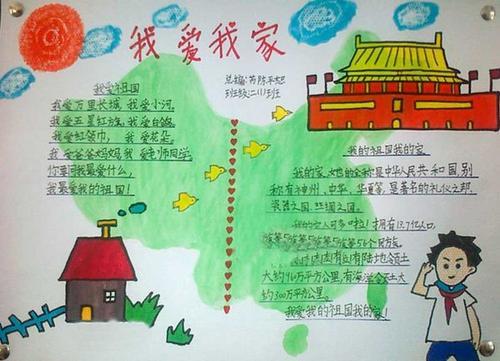 我爱我家
班级:二(1)班
我爱祖国
我爱万里长城,我爱小河
我爱五星红旗,我爱白鸽
我爱红领巾,我爱花朵
我爱爸爸妈妈,我爱老师同学
你要问我最爱什么,
我最爱我的祖国!
我的祖国我的家
我的家,她的全称是中华人民共和国,别
称有神州、中华、华夏等,是著名的礼仪之邦、
瓷器之国、丝绸之国。
我的家人可多啦!拥有13.7亿人口,
56个民族
有陆地领土
大约960万平方公里,有海洋领土大
约300万平方公里。
我爱我的祖国我的家!